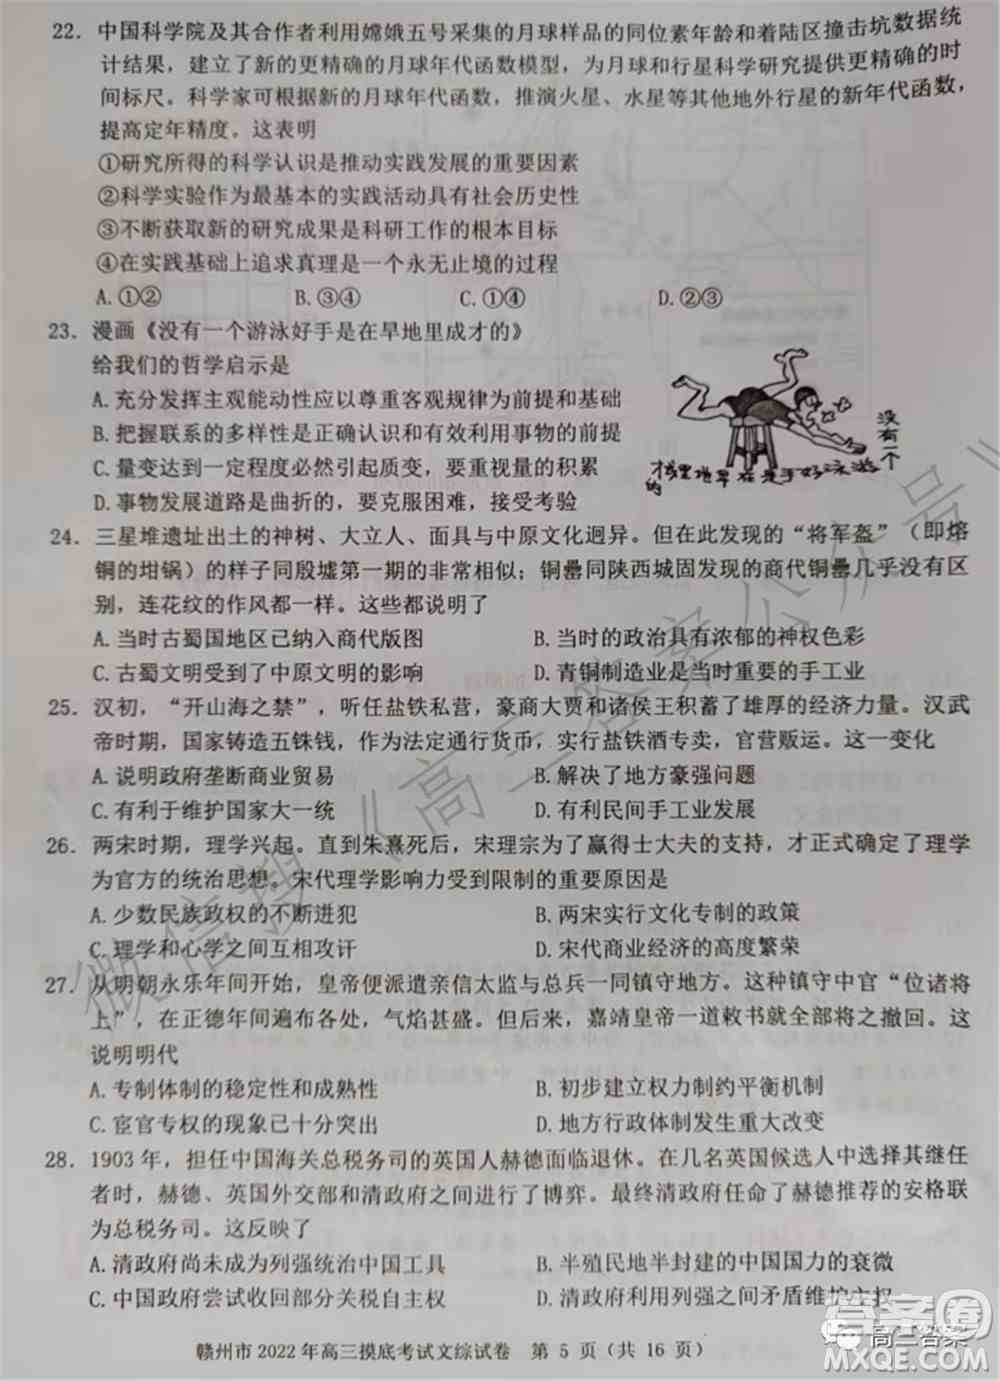 22. 中国科学院及其合作者利用嫦娥五号采集的月球样品的同位素年龄和着陆区撞击坑数据统
计结果，建立了新的更精确的月球年代函数模型，为月球和行星科学研究提供更精确的时
间标尺。科学家可根据新的月球年代函数，推演火星、水星等其他地外行星的新年代函数，
提高定年精度。这表明
①研究所得的科学认识是推动实践发展的重要因素
②科学实验作为最基本的实践活动具有社会历史性
③不断获取新的研究成果是科研工作的根本目标
④在实践基础上追求真理是一个永无止境的过程
A. ①② B. ③④ C. ①④ D. ②③
23. 漫画《没有一个游泳好手是在旱地里成才的》
给我们的哲学启示是
A. 充分发挥主观能动性应以尊重客观规律为前提和基础
B. 把握联系的多样性是正确认识和有效利用事物的前提
C. 量变达到一定程度必然引起质变，要重视量的积累
D. 事物发展道路是曲折的，要克服困难，接受考验
没有一个
才成里地旱在是手好泳游
的
24. 三星堆遗址出土的神树、大立人、面具与中原文化迥异。但在此发现的“将军盔”（即熔
铜的坩锅）的样子同殷墟第一期的非常相似；铜罍同陕西城固发现的商代铜罍几乎没有区
别，连花纹的作风都一样。这些都说明了
A. 当时古蜀国地区已纳入商代版图 B. 当时的政治具有浓郁的神权色彩
C. 古蜀文明受到了中原文明的影响 D. 青铜制造业是当时重要的手工业
25. 汉初，“开山海之禁”，听任盐铁私营，豪商大贾和诸侯王积蓄了雄厚的经济力量。汉武
帝时期，国家铸造五铢钱，作为法定通行货币，实行盐铁酒专卖，官营贩运。这一变化
A. 说明政府垄断商业贸易 B. 解决了地方豪强问题
C. 有利于维护国家大一统 D. 有利民间手工业发展
26. 两宋时期，理学兴起。直到朱熹死后，宋理宗为了赢得士大夫的支持，才正式确定了理学
为官方的统治思想。宋代理学影响力受到限制的重要原因是
A. 少数民族政权的不断进犯 B. 两宋实行文化专制的政策
C. 理学和心学之间互相攻讦 D. 宋代商业经济的高度繁荣
27. 从明朝永乐年间开始，皇帝便派遣亲信太监与总兵一同镇守地方。这种镇守中官“位诸将
上”，在正德年间遍布各处，气焰甚盛。但后来，嘉靖皇帝一道敕书就全部将之撤回。这
说明明代
A. 专制体制的稳定性和成熟性 B. 初步建立权力制约平衡机制
C. 宦官专权的现象已十分突出 D. 地方行政体制发生重大改变
28. 1903 年，担任中国海关总税务司的英国人赫德面临退休。在几名英国候选人中选择其继任
者时，赫德、英国外交部和清政府之间进行了博弈。最终清政府任命了赫德推荐的安格联
为总税务司。这反映了
A. 清政府尚未成为列强统治中国工具 B. 半殖民地半封建的中国国力的衰微
C. 中国政府尝试收回部分关税自主权 D. 清政府利用列强之间矛盾维护统治
赣州市 2022 年高三摸底考试文综试卷 第 5 页（共 16 页）
微信搜《高三答案公众号》
高三答案
答案圈
MXQE.COM